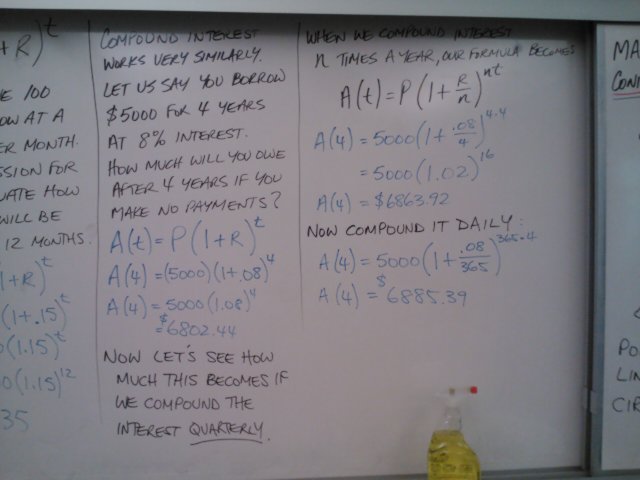 +R)^t
E 100
OW AT A
ER MONTH.
SSION FOR
UATE HOW
WILL BE
12 MONTHS.
1+R)^t
(1+.15)^t
(1.15)^t
0(1.15)^12
35
COMPOUND INTEREST
WORKS VERY SIMILARLY.
LET US SAY YOU BORROW
$5000 FOR 4 YEARS
AT 8% INTEREST.
HOW MUCH WILL YOU OWE
AFTER 4 YEARS IF YOU
MAKE NO PAYMENTS?
A(t)=P(1+R)^t
A(4)=(5000)(1+.08)^4
A(4)=5000(1.08)^4
=$6802.44
NOW LET'S SEE HOW
MUCH THIS BECOMES IF
WE COMPOUND THE
INTEREST QUARTERLY.
WHEN WE COMPOUND INTEREST
n TIMES A YEAR, OUR FORMULA BECOMES
A(t)=P(1+R/n)^nt
A(4)=5000(1+.08/4)^4·4
=5000(1.02)^16
A(4)=$6863.92
NOW COMPOUND IT DAILY:
A(4)=5000(1+.08/365)^365·4
A(4)=$6885.39
MA
CON
PO
LIN
CIR